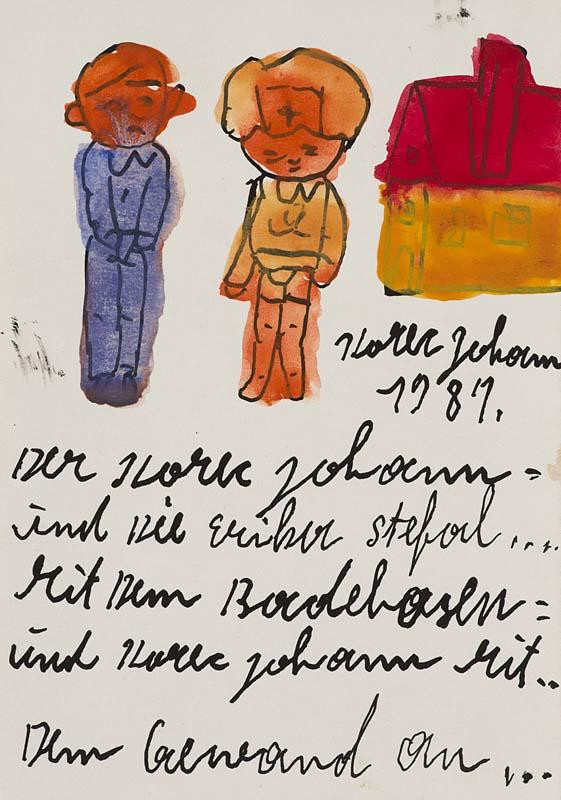 Korec Johann
1989.
Der Korec Johann =
und Die Eriker Stefal....
Mit Dem Badehosen =
und Korec Johann Mit..
Dem Gewand An ...